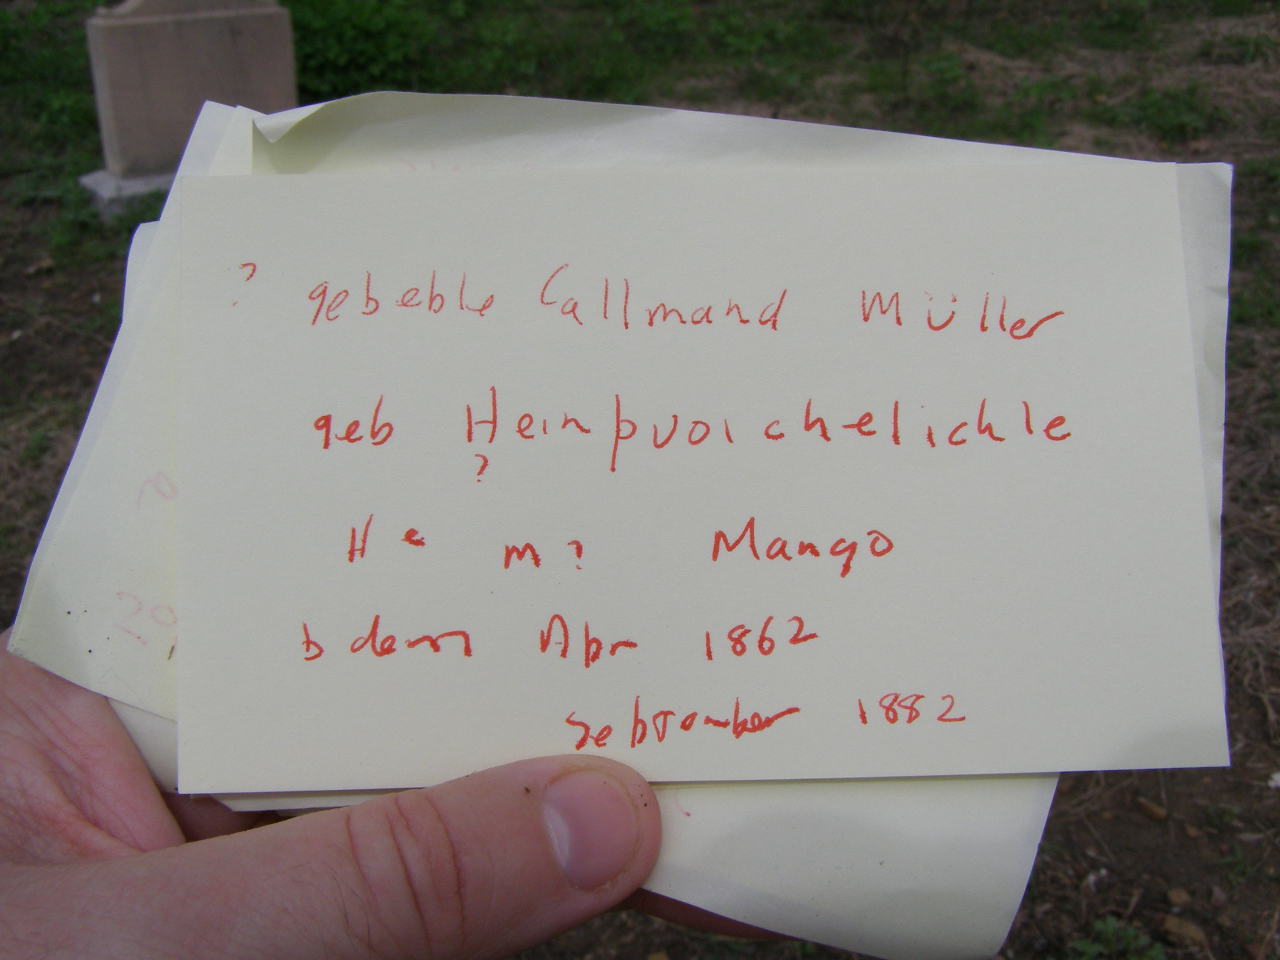 ? gebeble Callmand Müller
geb Heinpvoichelichle
?
He m? Mango
b dem Apr 1862
September 1882